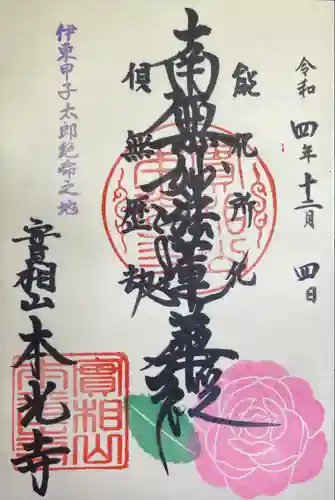 令和 四年 十二月 四日
能化所化
南無妙法蓮華経
倶無歴劫
伊東甲子太郎絶命之地
實相山 本光寺
實相山
本光寺